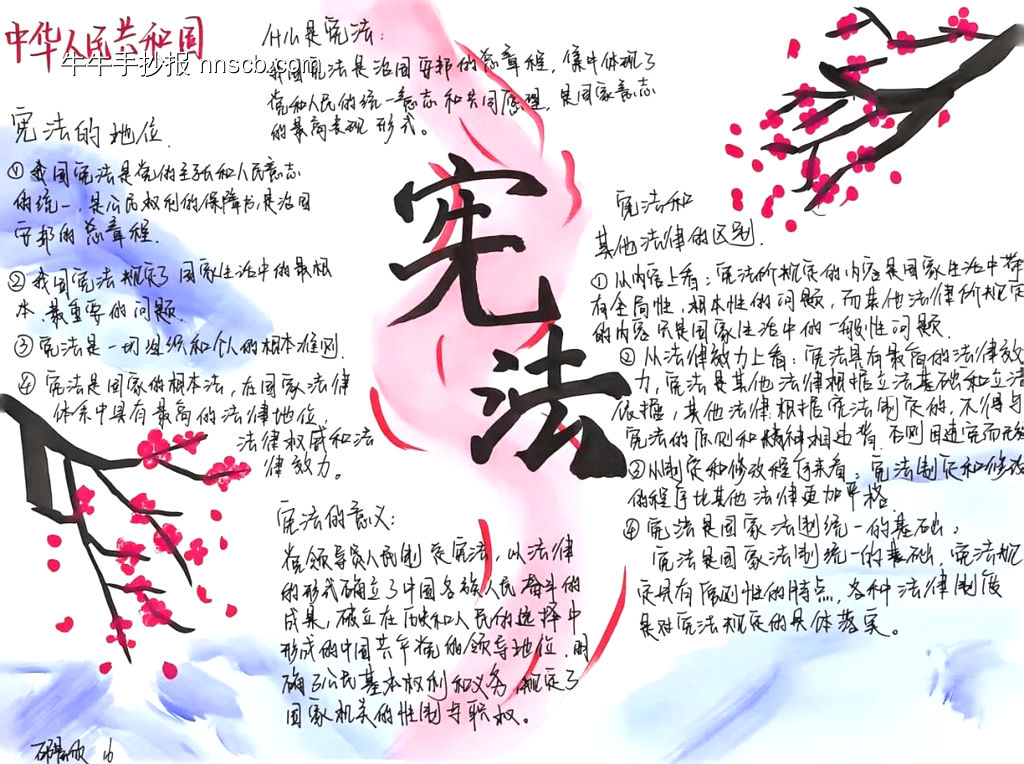 中华人民共和国
牛牛手抄报 nnscb.com
什么是宪法:
我国宪法是治国安邦的总章程,集中体现了
党和人民的统一意志和共同愿理,是国家意志
的最高表现形式。
宪法的地位.
①我国宪法是党的主张和人民意志
的统一,是公民权利的保障书,是治国
安邦的总章程.
②我国宪法规定了国家生活中的最根
本、最重要的问题.
③宪法是一切组织和个人的根本准则.
④宪法是国家的根本法,在国家法律
体系中具有最高的法律地位,
法律权威和法
律效力。
宪法
宪法的意义:
党领导人民制定宪法,以法律
的形式确立了中国各族人民奋斗的
成果,确立在历史和人民的选择中
形成的中国共产党的领导地位.明
确了公民基本权利和义务,规定了
国家机关的性制与职权。
宪法和
其他法律的区别.
①从内容上看:宪法所规定的内容是国家生活中带
有全局性,根本性的问题,而其他法律所规定
的内容只是国家生活中的一般性问题.
②从法律效力上看:宪法具有最高的法律效
力,宪法是其他法律根据立法基础和立法
依据,其他法律根据宪法制定的,不得与
宪法的原则和精神相违背.否则因违宪而无效
③从制定和修改程序来看:宪法制定和修改
的程序比其他法律更加严格
④宪法是国家法制统一的基础:
宪法是国家法制统一的基础,宪法规
定具有原则性的特点,各种法律制度
是对宪法规定的具体落实。